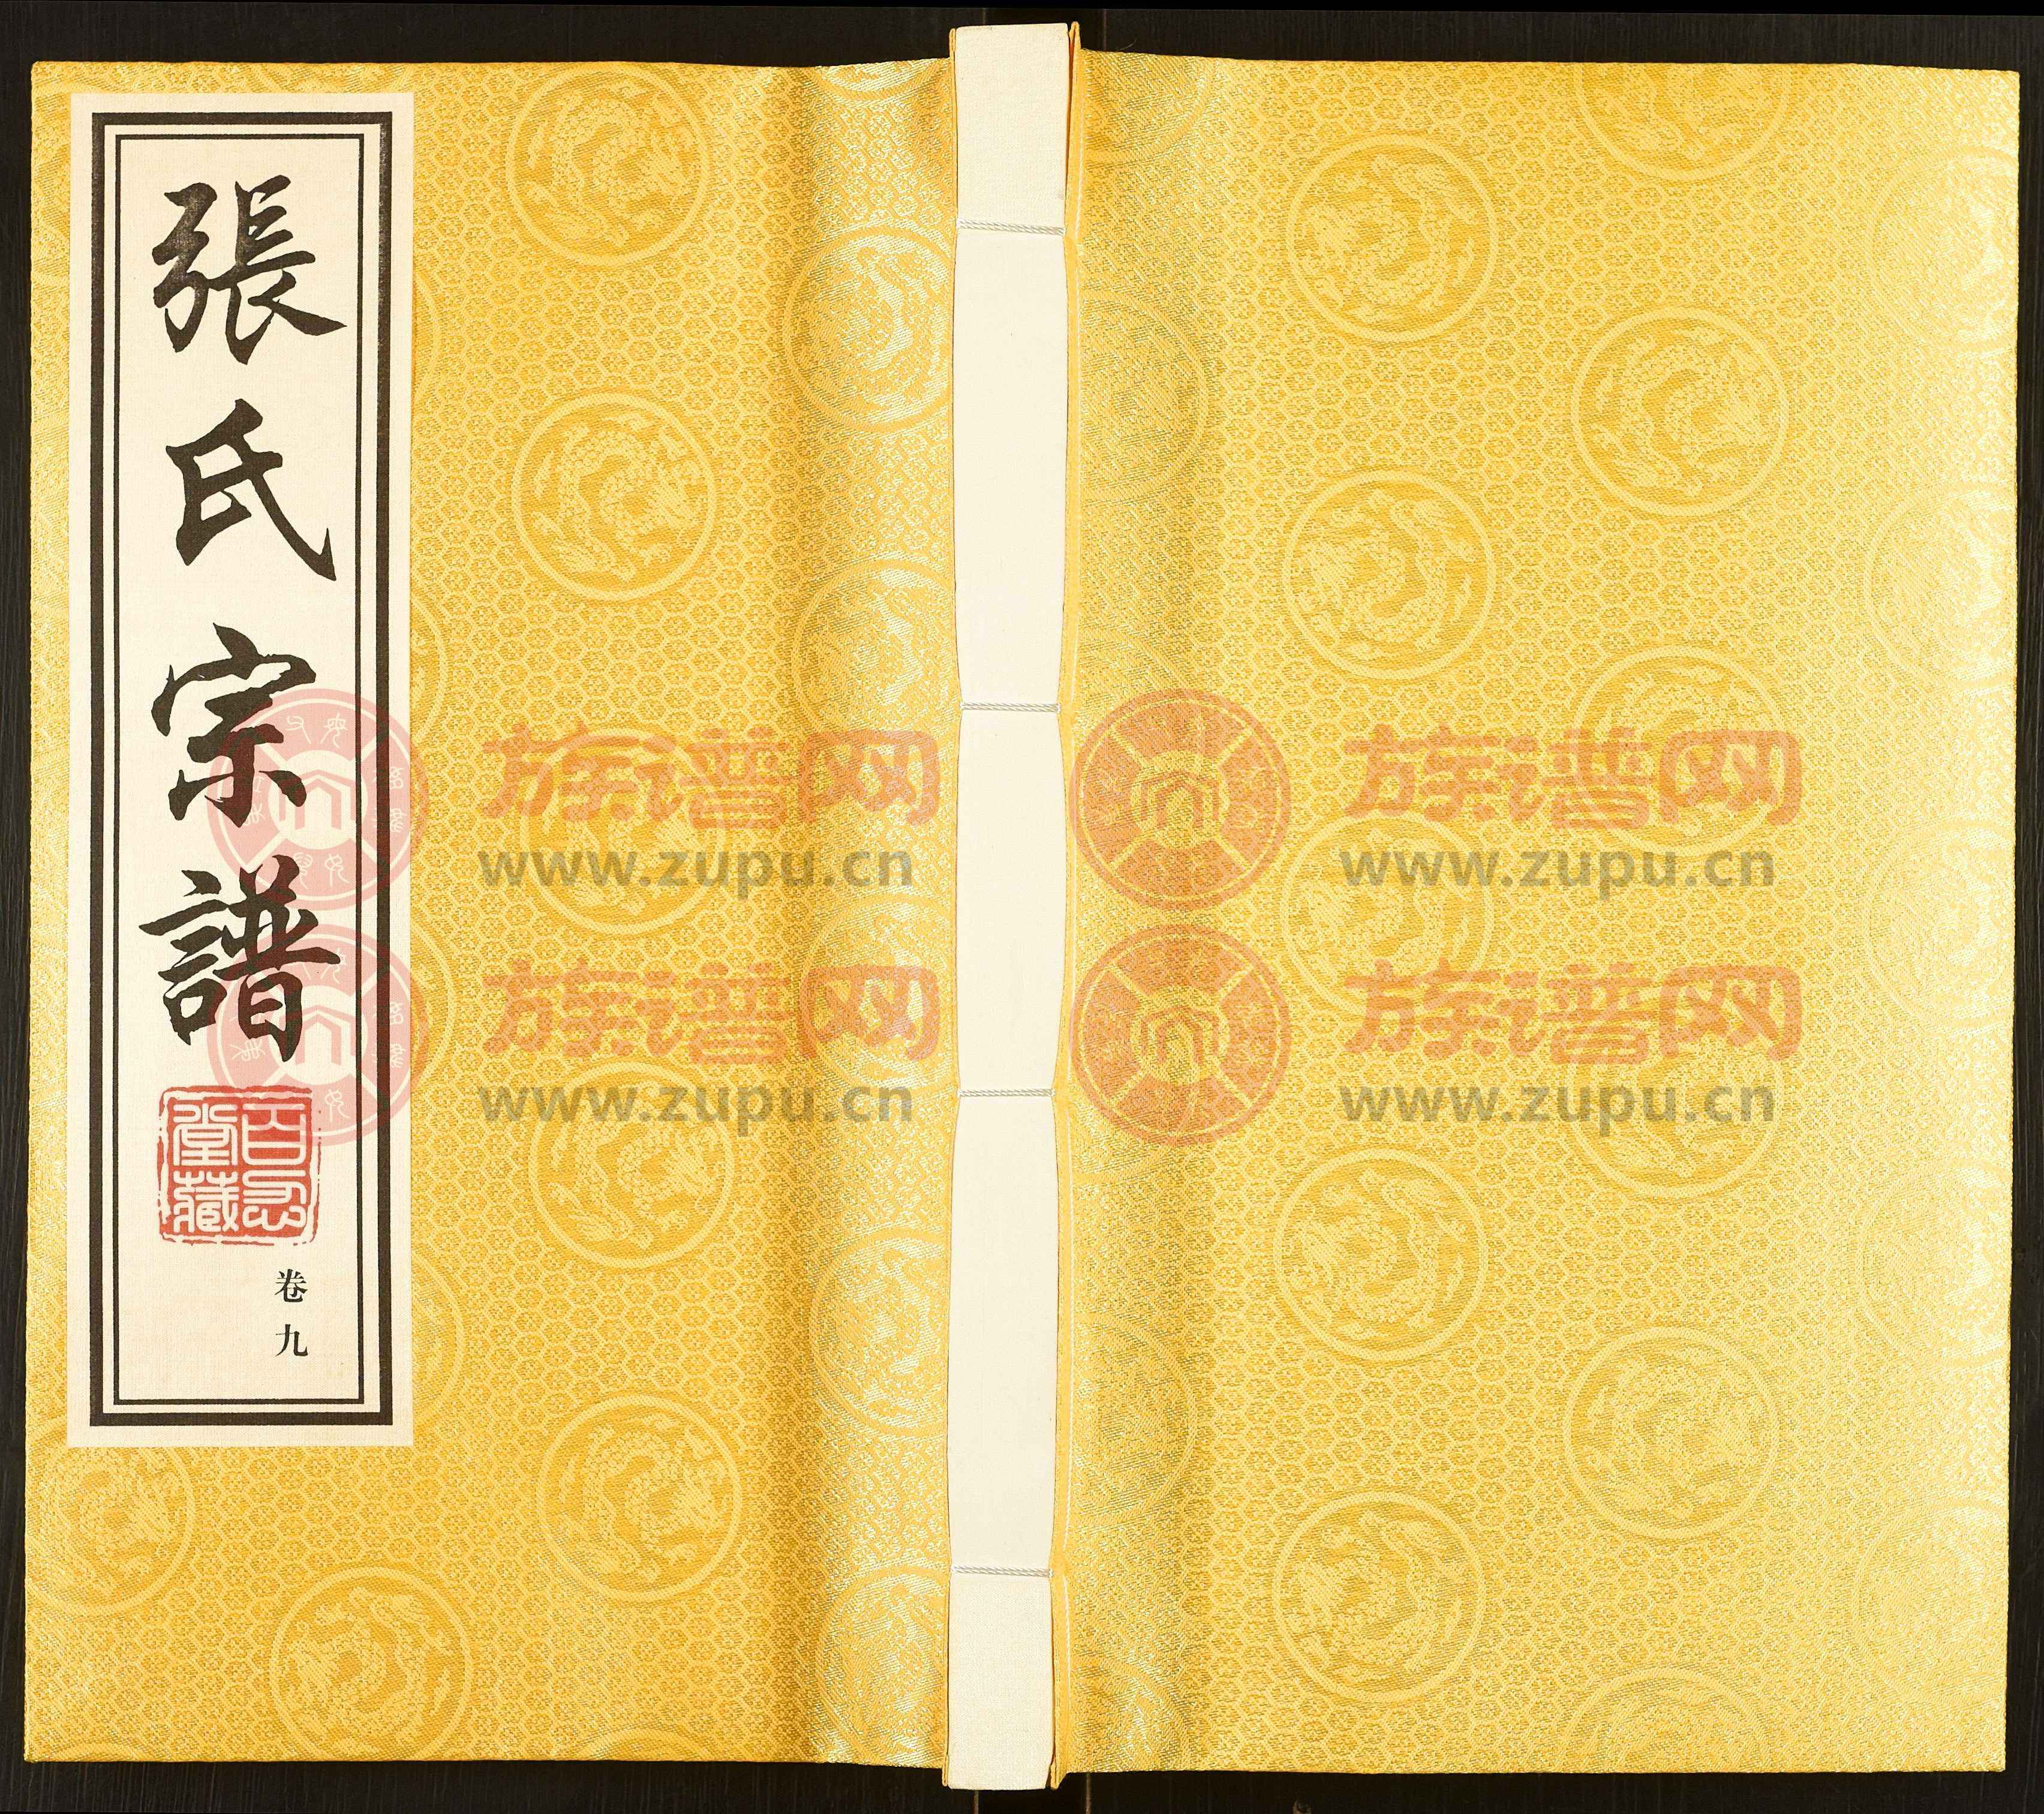 張氏宗譜
百忍堂藏
卷九
族谱网
www.zupu.cn
族谱网
www.zupu.cn
族谱网
www.zupu.cn
族谱网
www.zupu.cn